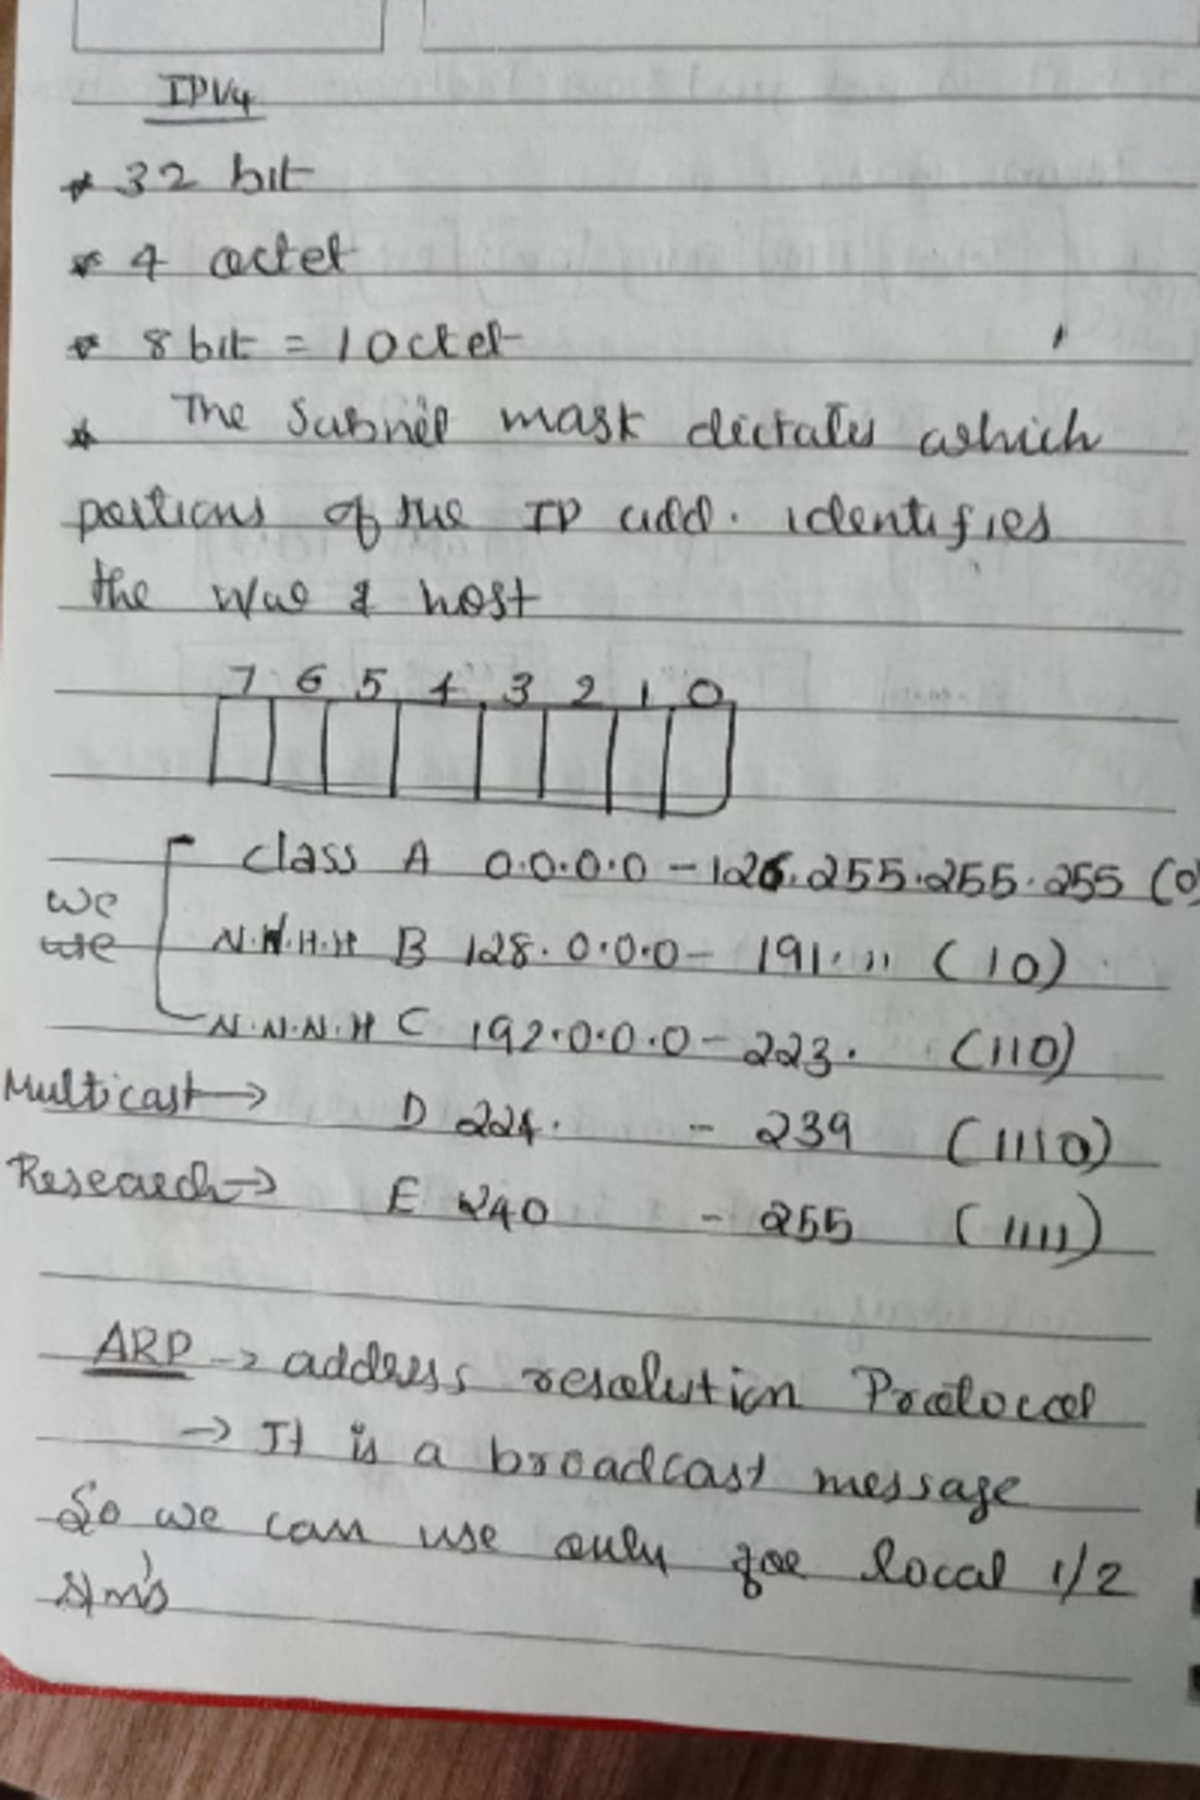 IPV4
* 32 bit
* 4 octet
* 8 bit = 1 Octet
* The Subnet mask dictates which
portions of the IP add. identifies
the N/w & host
7 6 5 4 3 2 1 0
Class A 0.0.0.0 - 126.255.255.255 (0)
we
N.N.H.H B 128.0.0.0 - 191. " (10)
N.N.N.H C 192.0.0.0 - 223. (110)
Multicast → D 224. - 239 (1110)
Research → E 240 - 255 (1111)
ARP → address resolution Protocol
→ It is a broadcast message
So we can use only for local 1/2